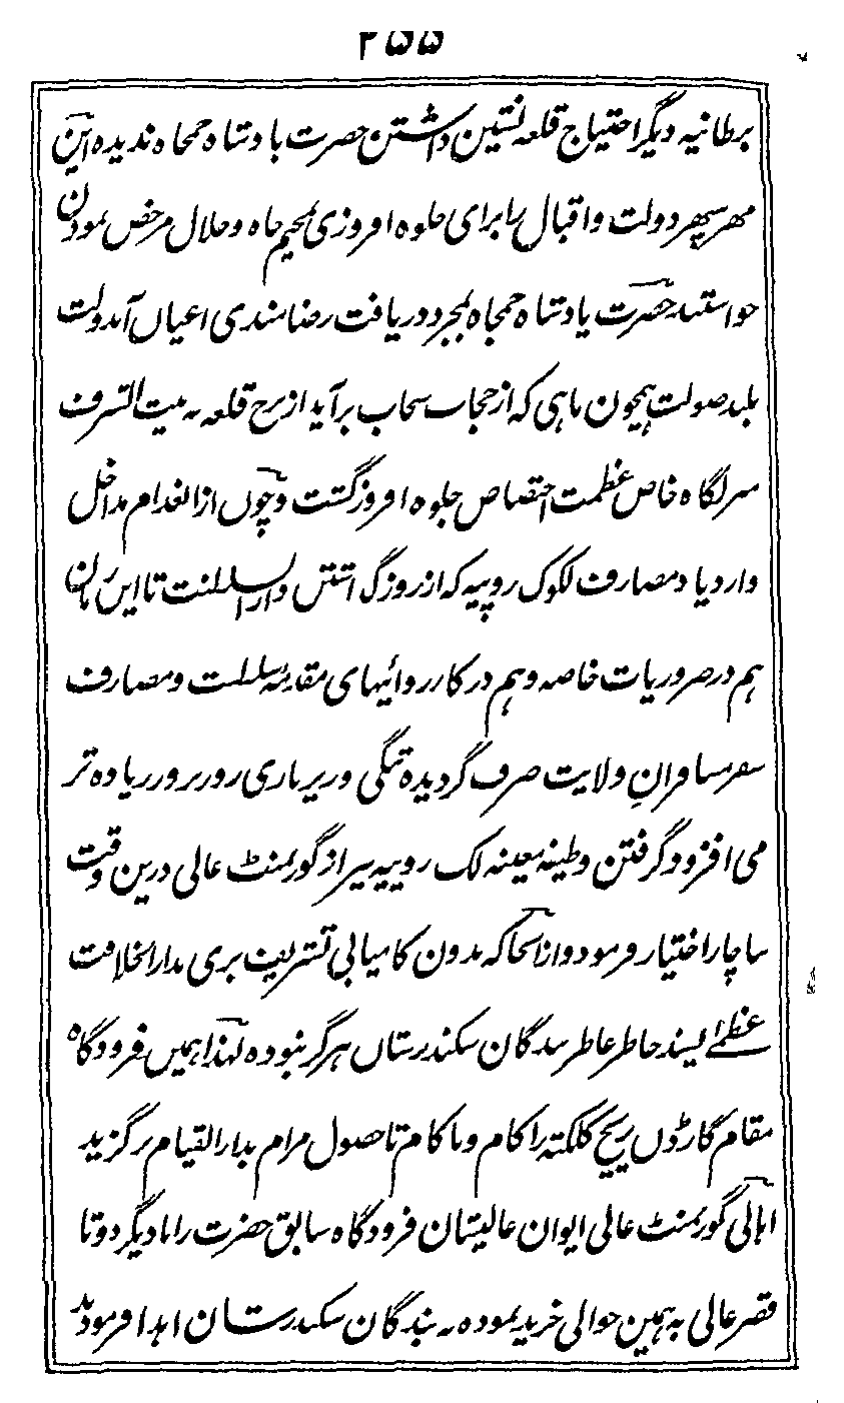 ۲۵۵
برطانیه دیگر احتیاج قلعه نشین داشتن حضرت بادشاه جمجاه ندیده این
مهر سپهر دولت و اقبال را برای جلوه افروزی مخیم جاه و جلال مرخص نمودن
خواستند حضرت بادشاه جمجاه بمجرد دریافت رضامندی اعیان آندولت
بلند صولت همچون ماهی که از حجاب سحاب برآید از برج قلعه به بیت الشرف
منزلگاه خاص عظمت اختصاص جلوه افروز گشت و چون از انعدام مداخل
وازدیاد مصارف لکوک روپیه که از روز گذاشتن دارالسلطنت تا این زمان
هم در ضروریات خاصه و هم در کارروائیهای مقدمه سلطنت و مصارف
سفر مسافران ولایت صرف گردیده تنگی و زیرباری روز بروز زیاده تر
می افزود گرفتن وظیفه معینه لک روپیه نیز از گورنمنٹ عالی درین وقت
ناچار اختیار فرمود و ازانجا که بدون کامیابی تشریف بری بدارالخلافت
عظمیٰ پسند خاطر عاطر بندگان سکندرشان هرگز نبوده لهذا همین فرودگاه
مقام گارڈن ریچ کلکته را کام و ناکام تا حصول مرام بدار القیام برگزید
اهالی گورنمنٹ عالی ایوان عالیشان فرودگاه سابق حضرت را با دیگر دو تا
قصر عالی به همین حوالی خرید نموده به بندگان سکندرشان اهدا فرمودند